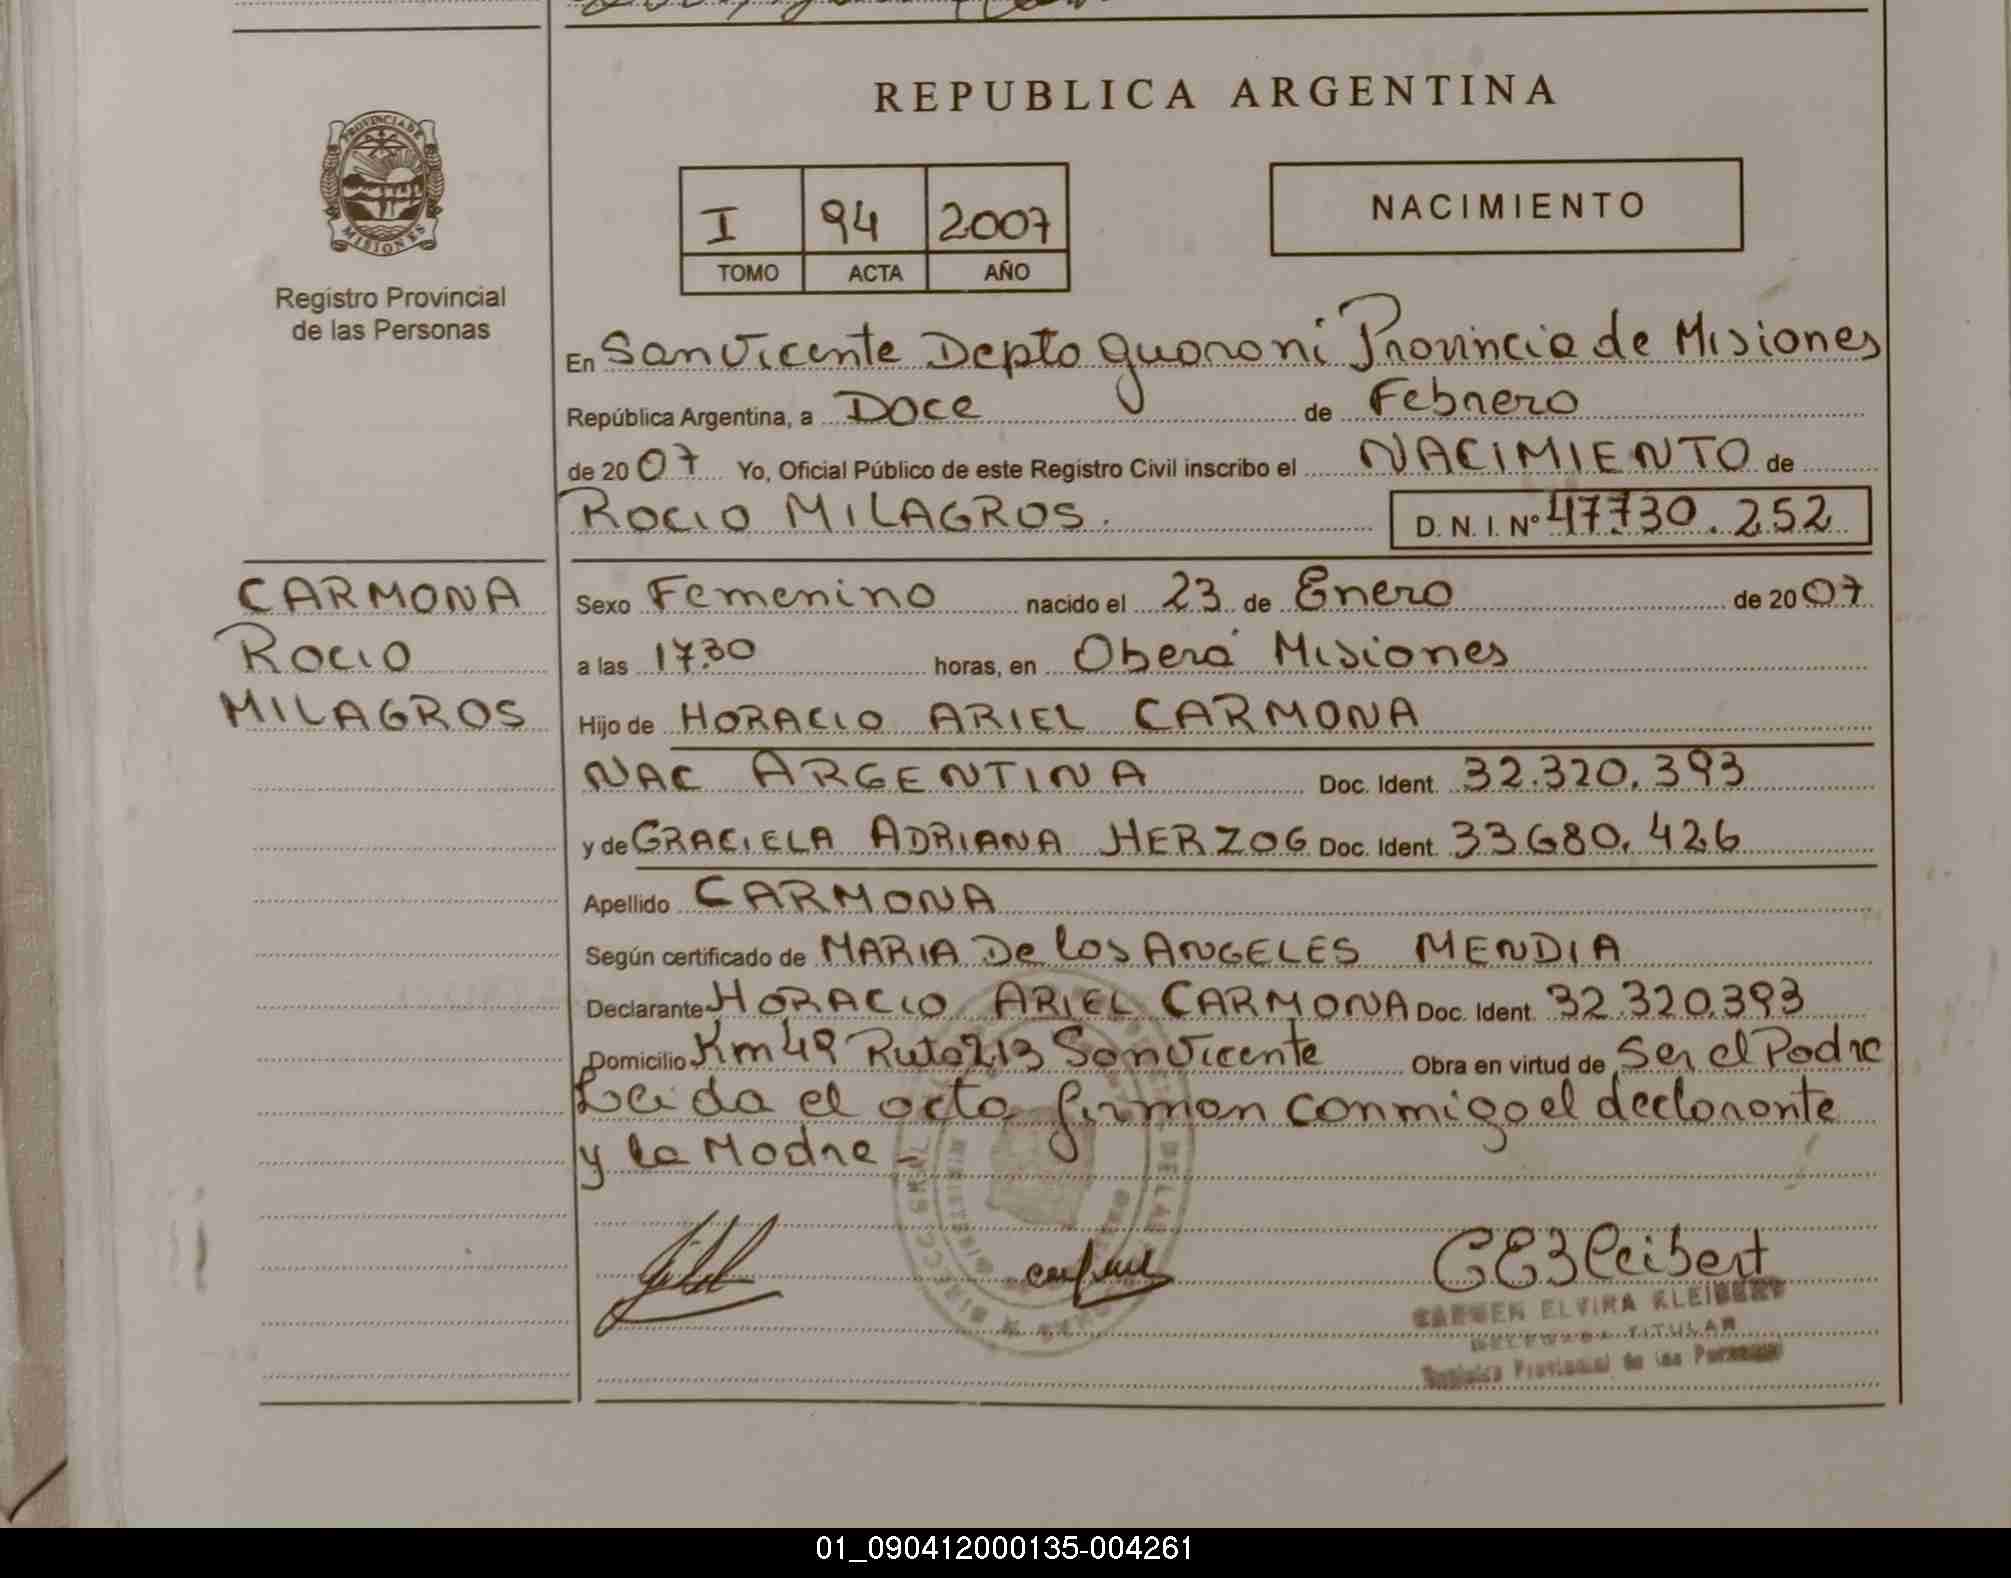 REPUBLICA ARGENTINA
PROVINCIA DE
MISIONES
Registro Provincial
de las Personas
I 94 2007
TOMO ACTA AÑO
NACIMIENTO
En San Vicente Depto guarani Provincia de Misiones
República Argentina, a Doce de Febrero
de 2007 Yo, Oficial Público de este Registro Civil inscribo el NACIMIENTO de
ROCIO MILAGROS. D. N. I. Nº 47.730.252
CARMONA
ROCIO
MILAGROS
Sexo Femenino nacido el 23 de Enero de 2007
a las 17.30 horas, en Oberá Misiones
Hijo de HORACIO ARIEL CARMONA
NAC ARGENTINA Doc. Ident. 32.320.393
y de GRACIELA ADRIANA HERZOG Doc. Ident. 33.680.426
Apellido CARMONA
Según certificado de MARIA De los ANGELES MENDIA
Declarante HORACIO ARIEL CARMONA Doc. Ident. 32.320.393
Domicilio Km 49 Ruta 213 San Vicente Obra en virtud de Ser el Padre
Leida el acta firman conmigo el declarante
y la Madre -
CARMEN ELVIRA KLEIBERT
TITULAR
Registro Provincial de las Personas
01_090412000135-004261